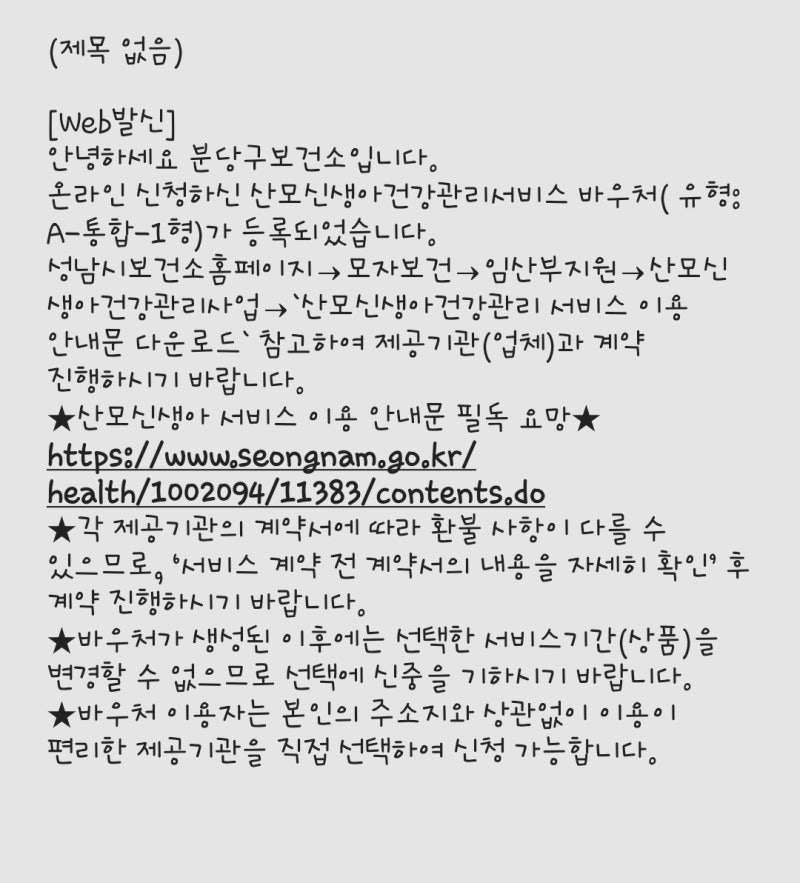 (제목 없음)
[Web발신]
안녕하세요 분당구보건소입니다.
온라인 신청하신 산모신생아건강관리서비스 바우처( 유형:
A-통합-1형)가 등록되었습니다.
성남시보건소홈페이지→모자보건→임산부지원→산모신
생아건강관리사업→`산모신생아건강관리 서비스 이용
안내문 다운로드` 참고하여 제공기관(업체)과 계약
진행하시기 바랍니다.
★산모신생아 서비스 이용 안내문 필독 요망★
https://www.seongnam.go.kr/
health/1002094/11383/contents.do
★각 제공기관의 계약서에 따라 환불 사항이 다를 수
있으므로, ‘서비스 계약 전 계약서의 내용을 자세히 확인’ 후
계약 진행하시기 바랍니다.
★바우처가 생성된 이후에는 선택한 서비스기간(상품)을
변경할 수 없으므로 선택에 신중을 기하시기 바랍니다.
★바우처 이용자는 본인의 주소지와 상관없이 이용이
편리한 제공기관을 직접 선택하여 신청 가능합니다.